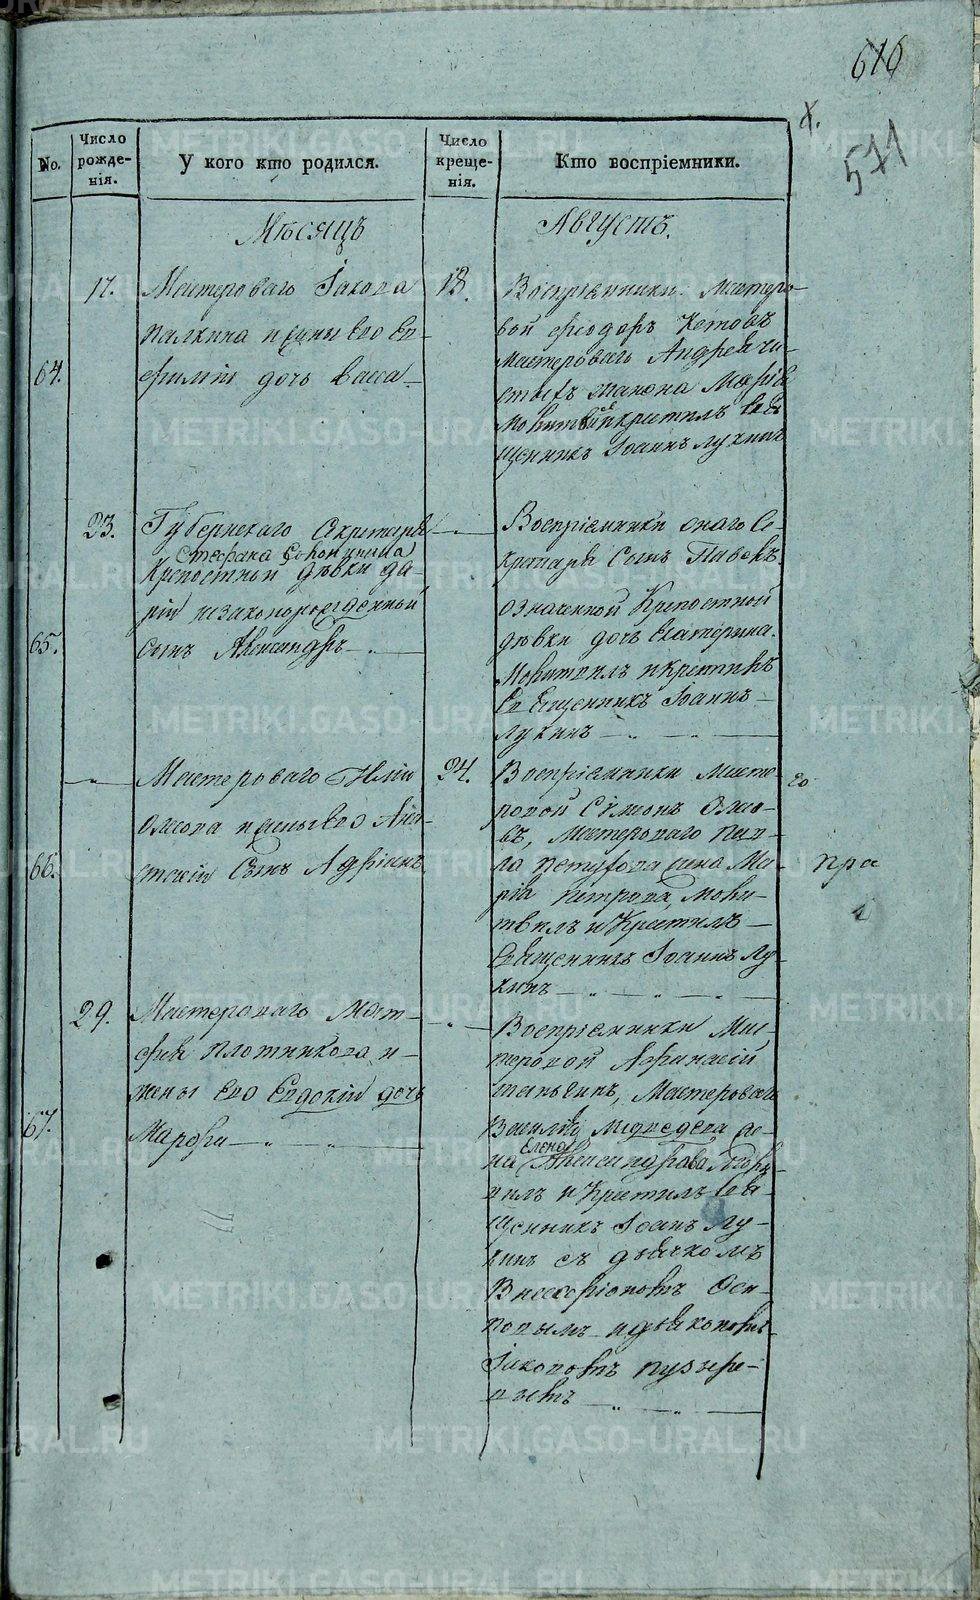 616
571
No.
Число рожде-нія.
У кого кто родился.
Число креще-нія.
Кто воспріемники.
Мѣсяцъ
Августъ.
64.
17.
Мастероваго Іакова
Палкина и жены его Ев-
фиміи дочь Васса
18.
Воспріемники: Мастеро-
вой Феодоръ Котовъ
Мастероваго Андрея Чи-
стыхъ жанона Марія
Молитвилъ и крестилъ Свя
щенникъ Іоаннъ Лукинъ
65.
23.
Губернскаго Секритаря
Стефана
Крепостной дѣвки Да-
ріи незаконорожденный
сынъ Александръ
Воспріемники онаго Се-
критаря сынъ Павелъ
означенной Крепостной
дѣвки дочь Екатерина.
Молитвилъ и крестилъ
Священникъ Іоаннъ
Лукинъ
66.
Мастероваго Иліи
Ожгова и жены его Ана-
стасіи Сынъ Адріанъ
24.
Воспріемники Масте-
ровой Сімонъ Ожго-
въ, Мастероваго Пав-
ла Петухова жена Ма-
рія Петрова, Моли-
твилъ и Крестилъ
Священникъ Іоаннъ Лу-
кинъ
пра
67.
29.
Мастероваго Мат-
фея Плотникова и
жены его Евдокіи дочь
Марфа
Воспріемники Мас-
теровой Афанасій
Мастероваго
Василія Медведева же-
на Елена Александрова
вилъ и Крестилъ Свя-
щенникъ Іоаннъ Лу-
кинъ съ дьячкомъ
Виссаріономъ Оси-
повымъ и
Іаковомъ Пузыре-
вымъ
METRIKI.GASO-URAL.RU